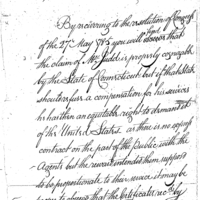 By recurring to the resolution of Congress
of the 27th May 1785 you will observe that
the claim of Mr Judd is properly cognizable
by the State of Connecticut but if that State
should refuse a compensation for his services
he has then an equitable right to demand it
of the United States as there is no
contract on the part of the public with the
Agents but the reward intended them, supposed
to be proportionate to their service it may be
to observe that the Certificates by